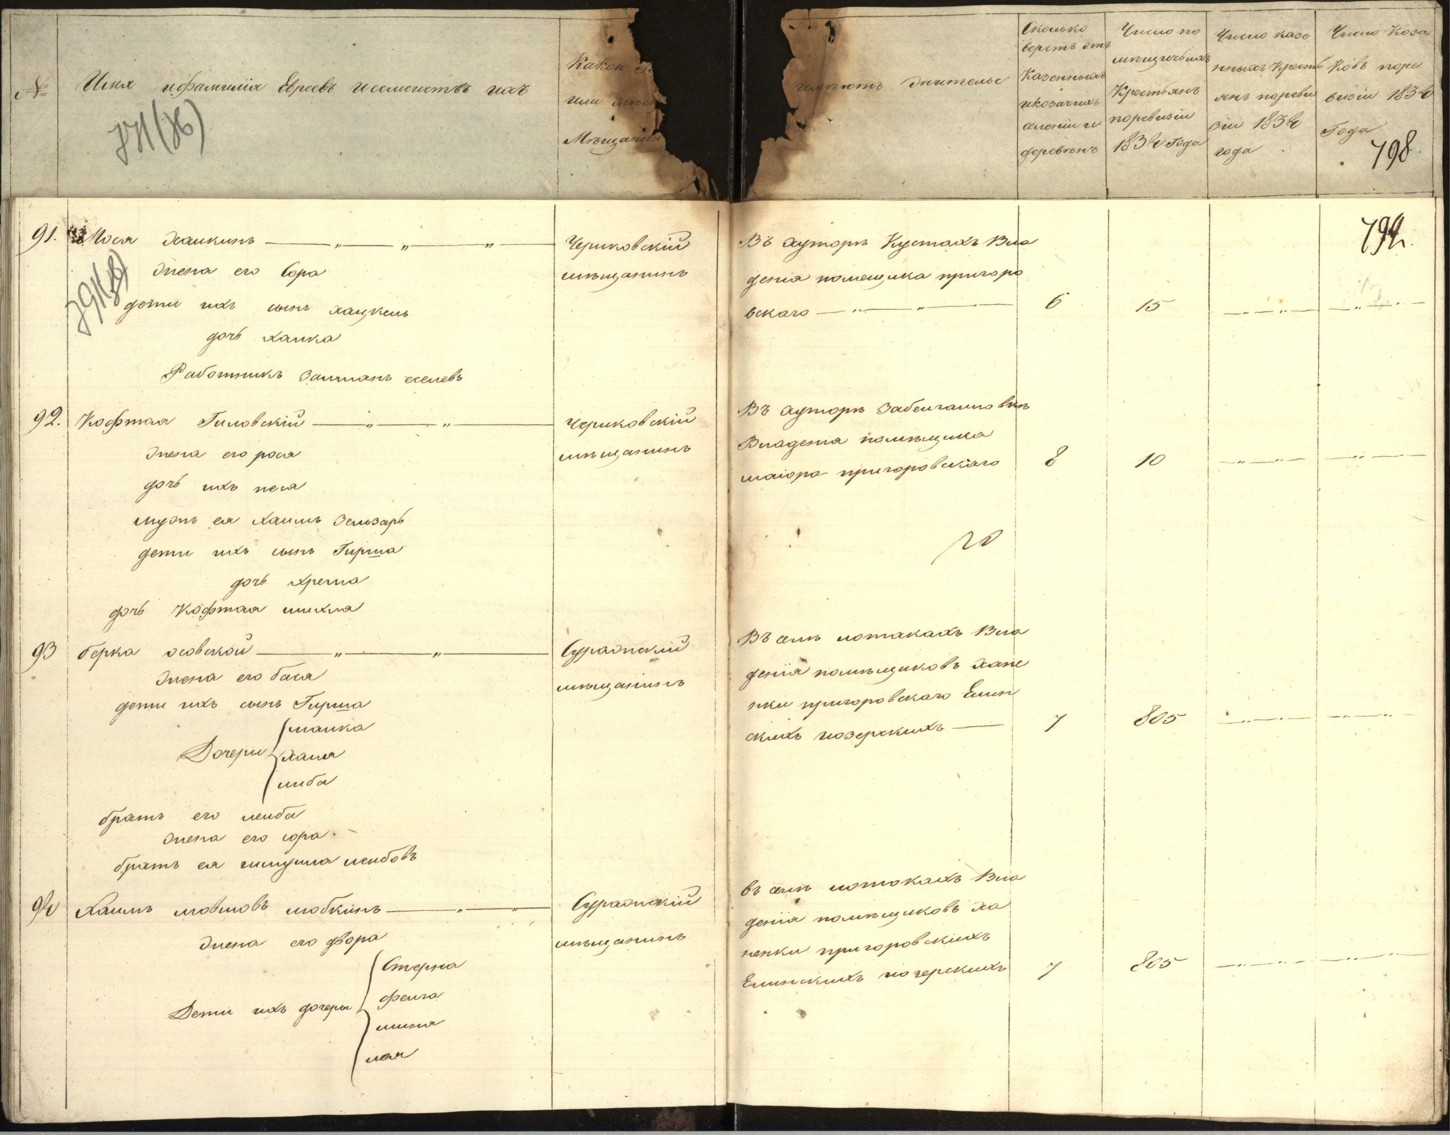 №
Имя и фамилія Евреевъ и семействъ ихъ
Какой
или
Мѣщанинъ
имѣютъ жительс
Сколько
верстъ отъ
Казенныхъ
и козачихъ
селеніи и
деревьнь
Число по
мѣщичьихъ
Крестьянъ
поревизіи
1834 Года
Число казе
нныхъ Кресть
янъ пореви
зіи 1834
года
Число Коза
ковъ поре
визіи 1834
Года
798
791.
91. Мося Хаикинъ
жена его Сора
дети ихъ сынъ хацкель
дочь ханка
Работникъ Залманъ
Чериковскій
мѣщанинъ
Въ хуторѣ Кустахъ Вла
дения помещика пригоро
вскаго
6
15
92. Кофтая Гиловскій
жена его рося
дочь ихъ песя
мужъ ея Хаимъ
дети ихъ сынъ Гирша
дочь хрема
дочь Кофтая михля
Чериковскій
мѣщанинъ
Въ хуторѣ
Владения помѣщика
маіора пригоровскаго
8
10
93 Берка осовской
жена его бася
дети ихъ сынъ Гирша
Дочери
малка
хая
либа
братъ его лейба
жена его сора
братъ ея лейбовъ
Суражскій
мѣщанинъ
Въ селѣ лотакахъ Вла
дения помѣщиковъ хане
нки пригоровскаго Елин
скихъ
7
805
94 Хаимъ мовшовъ любкинъ
жена его двора
Дети ихъ дочеры
Стерна
фейга
миня
лея
Суражскій
мѣщанинъ
въ селѣ лотокахъ Вла
денія помѣщиковъ ха
ненки пригоровскихъ
Елинскихъ
7
805